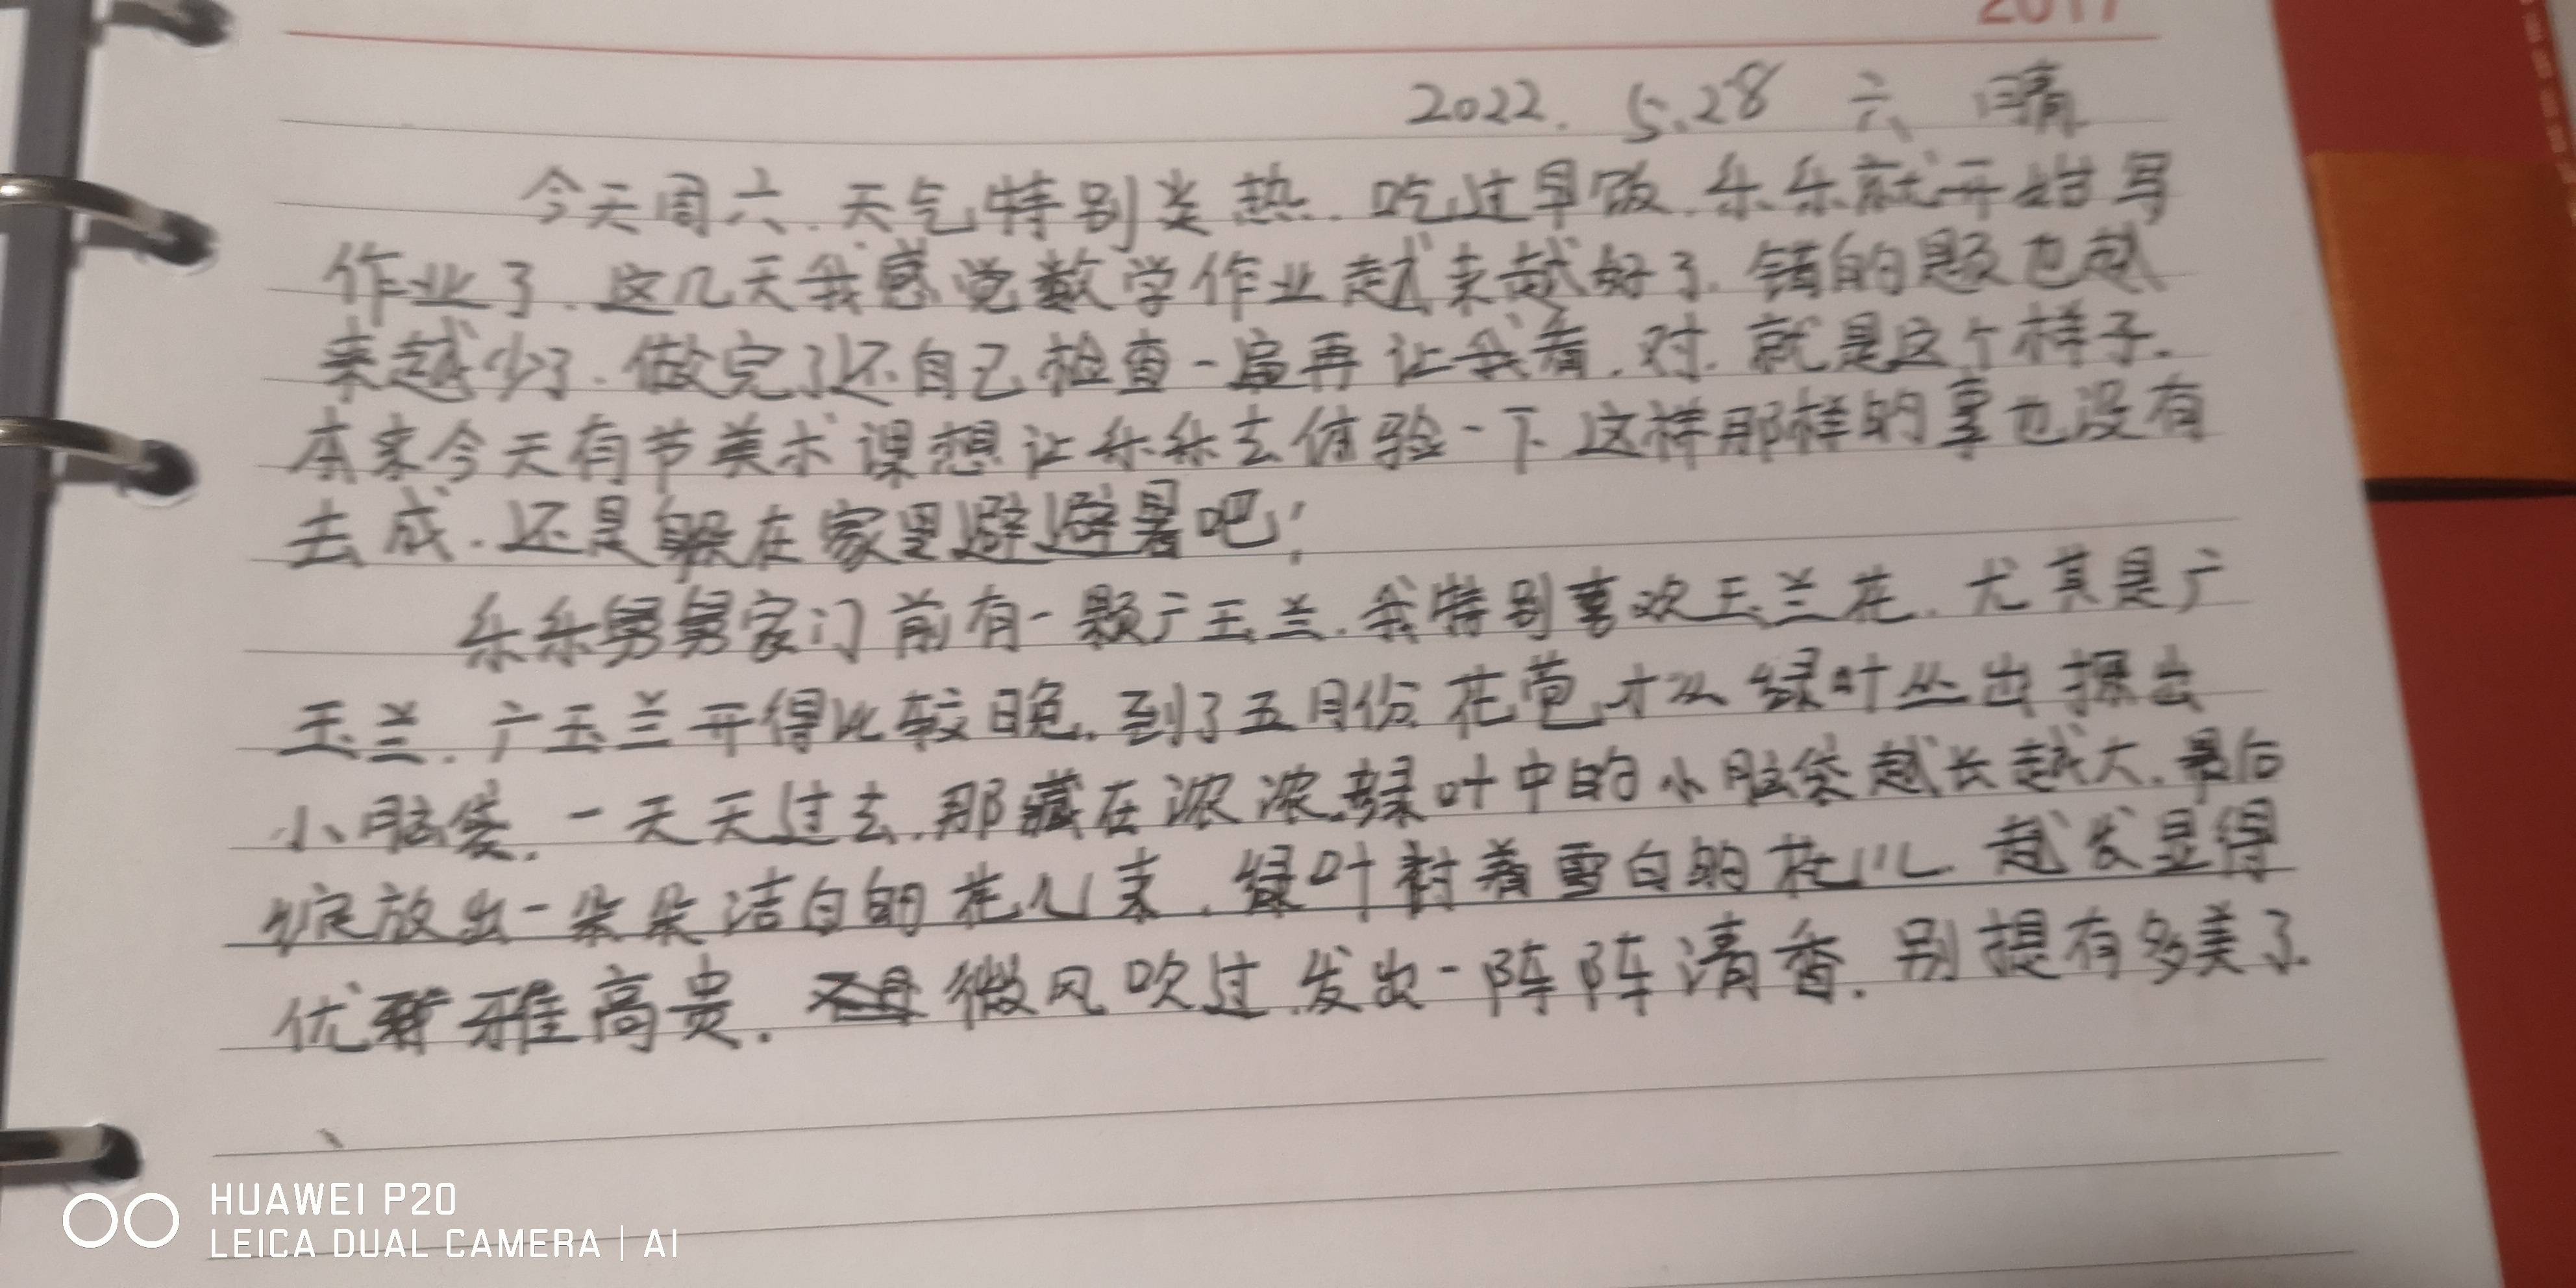 2017
2022. 5.28 六 晴
今天周六.天气特别炎热.吃过早饭.乐乐就开始写
作业了.这几天我感觉数学作业越来越好了.错的题也越
来越少了.做完了还自己检查一遍再让我看.对.就是这个样子.
本来今天有节美术课想让乐乐去体验一下.这样那样的事也没有
去成.还是躲在家里避避暑吧!
乐乐舅舅家门前有一颗广玉兰.我特别喜欢玉兰花.尤其是广
玉兰.广玉兰开得比较晚.到了五月份花苞才从绿叶丛出探出
小脑袋.一天天过去.那藏在浓浓绿叶中的小脑袋越长越大.最后
绽放出一朵朵洁白的花儿来.绿叶衬着雪白的花儿.越发显得
优雅高贵.微风吹过.发出一阵阵清香.别提有多美了.
HUAWEI P20
LEICA DUAL CAMERA | AI